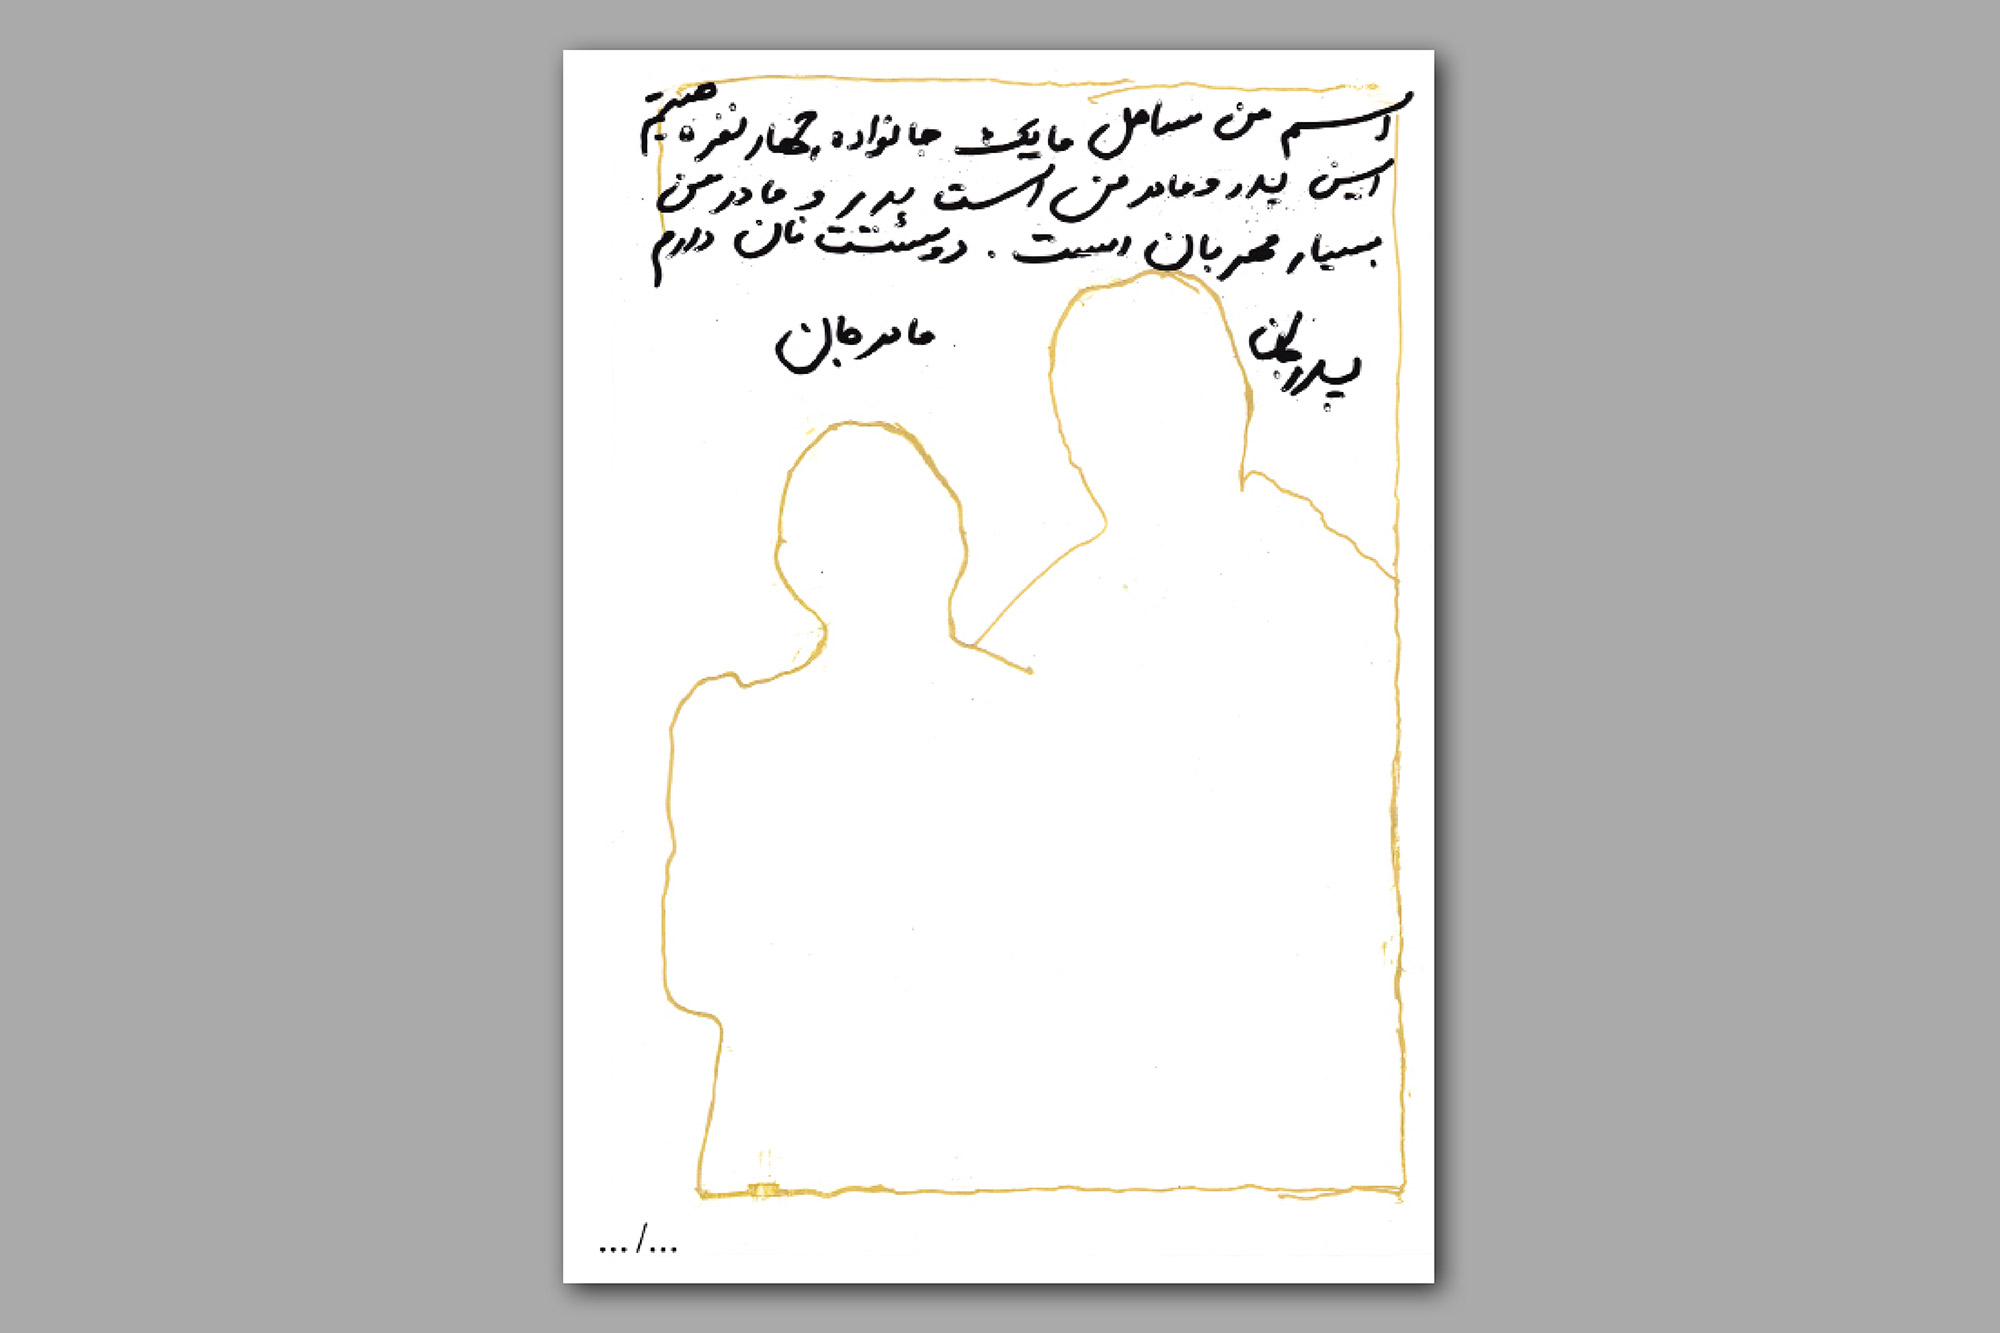 اسم من ساحل ما یک خانواده چهار نفره هستیم
این پدر و مادر من است پدر و مادر من
بسیار مهربان است . دوستت تان دارم
پدر جان
مادر جان
.../...